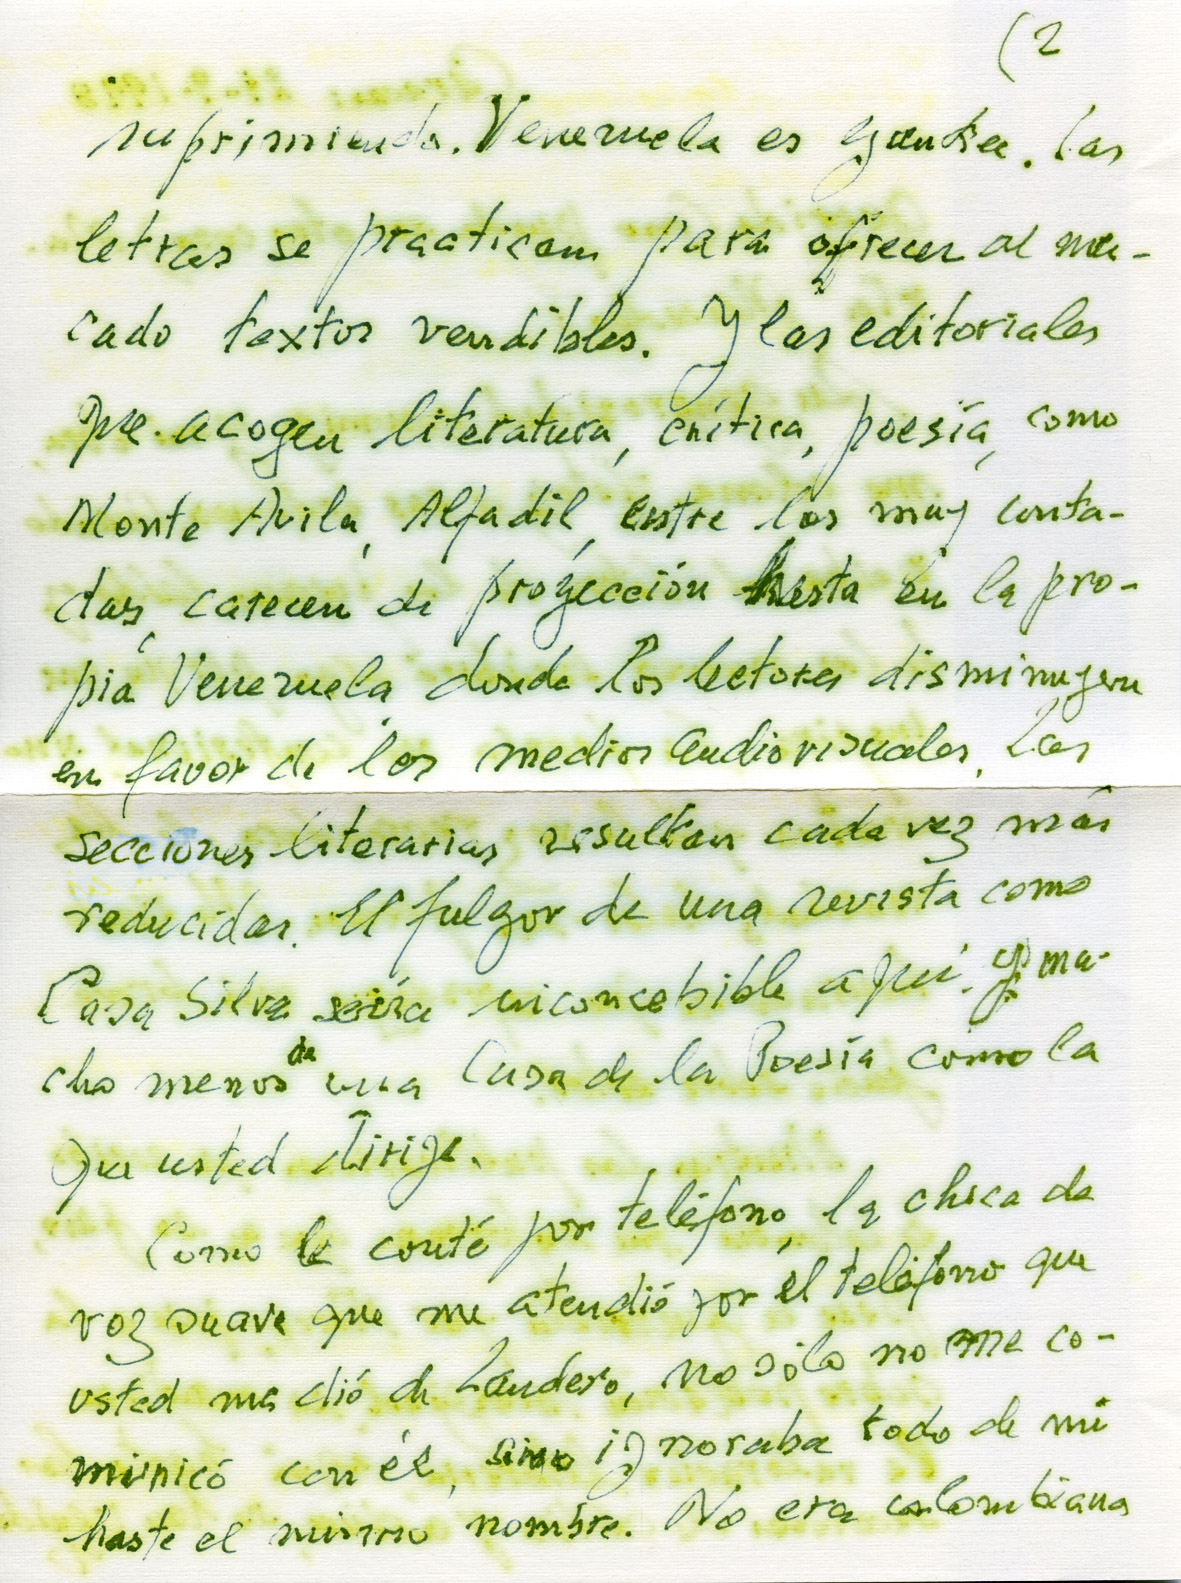 (2
suprimiendo. Venezuela es yankee. Las
letras se practican para ofrecer al mer-
cado textos vendibles. Y las editoriales
que acogen literatura, crítica, poesía, como
Monte Avila, Alfadil, entre las muy conta-
das, carecen de proyección hasta en la pro-
pia Venezuela donde los lectores disminuyen
en favor de los medios audiovisuales. Las
secciones literarias resultan cada vez más
reducidas. El fulgor de una revista como
Casa Silva sería inconcebible aquí. Y mu-
cho menos de una Casa de la Poesía como la
que usted dirige.
Como le conté por teléfono, la chica de
voz suave que me atendió por el teléfono que
usted me dió de Landero, no sólo no me co-
municó con él, sino ignoraba todo de mi
hasta el mismo nombre. No era colombiana